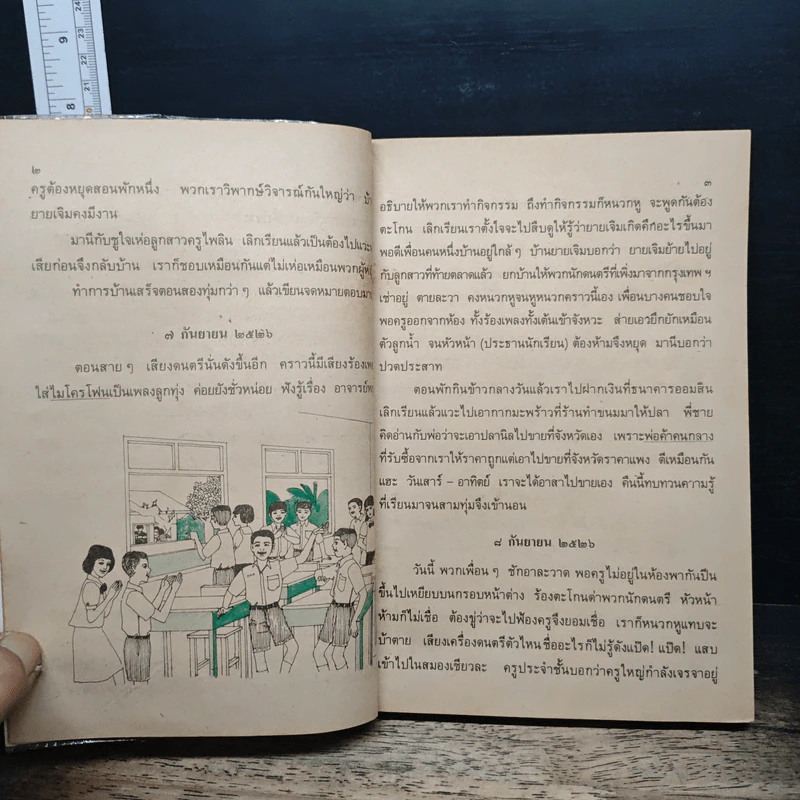 ๒
ครูต้องหยุดสอนพักหนึ่ง พวกเราวิพากษ์วิจารณ์กันใหญ่ว่า
ยายเจิมคงมีงาน
มานีกับชูใจเห่อลูกสาวครูไพลิน เลิกเรียนแล้วเป็นต้องไปแวะ
เสียก่อนจึงกลับบ้าน เราก็ชอบเหมือนกันแต่ไม่เห่อเหมือนพวกผู้
ทำการบ้านเสร็จตอนสองทุ่มกว่า ๆ แล้วเขียนจดหมายตอบ
๗ กันยายน ๒๕๒๖
ตอนสาย ๆ เสียงดนตรีนั่นดังขึ้นอีก คราวนี้มีเสียงร้อง
ใส่ไมโครโฟนเป็นเพลงลูกทุ่ง ค่อยยังชั่วหน่อย ฟังรู้เรื่อง อาจารย์
๓
อธิบายให้พวกเราทำกิจกรรม ถึงทำกิจกรรมก็หนวกหู จะพูดกันต้อง
ตะโกน เลิกเรียนเราตั้งใจจะไปสืบดูให้รู้ว่ายายเจิมเกิดคึกอะไรขึ้นมา
พอดีเพื่อนคนหนึ่งบ้านอยู่ใกล้ ๆ บ้านยายเจิมบอกว่า ยายเจิมย้ายไปอยู่
กับลูกสาวที่ท้ายตลาดแล้ว ยกบ้านให้พวกนักดนตรีที่เพิ่งมาจากกรุงเทพ ฯ
เช่าอยู่ ตายละวา คงหนวกหูจนหูหนวกคราวนี้เอง เพื่อนบางคนชอบใจ
พอครูออกจากห้อง ทั้งร้องเพลงทั้งเต้นเข้าจังหวะ ส่ายเอวยึกยักเหมือน
ตัวลูกน้ำ จนหัวหน้า (ประธานนักเรียน) ต้องห้ามจึงหยุด มานีบอกว่า
ปวดประสาท
ตอนพักกินข้าวกลางวันแล้วเราไปฝากเงินที่ธนาคารออมสิน
เลิกเรียนแล้วแวะไปเอากากมะพร้าวที่ร้านทำขนมมาให้ปลา พี่ชาย
คิดอ่านกับพ่อว่าจะเอาปลานิลไปขายที่จังหวัดเอง เพราะพ่อค้าคนกลาง
ที่รับซื้อจากเราให้ราคาถูกแต่เอาไปขายที่จังหวัดราคาแพง ดีเหมือนกัน
แฮะ วันเสาร์ – อาทิตย์ เราจะได้อาสาไปขายเอง คืนนี้ทบทวนความรู้
ที่เรียนมาจนสามทุ่มจึงเข้านอน
๘ กันยายน ๒๕๒๖
วันนี้ พวกเพื่อน ๆ ชักอาละวาด พอครูไม่อยู่ในห้องพากันปีน
ขึ้นไปเหยียบบนกรอบหน้าต่าง ร้องตะโกนด่าพวกนักดนตรี หัวหน้า
ห้ามก็ไม่เชื่อ ต้องขู่ว่าจะไปฟ้องครูจึงยอมเชื่อ เราก็หนวกหูแทบจะ
บ้าตาย เสียงเครื่องดนตรีตัวไหนชื่ออะไรก็ไม่รู้ดังแป๊ด! แป๊ด! แสบ
เข้าไปในสมองเชียวละ ครูประจำชั้นบอกว่าครูใหญ่กำลังเจรจาอยู่
8
9
20
21
22
23
24